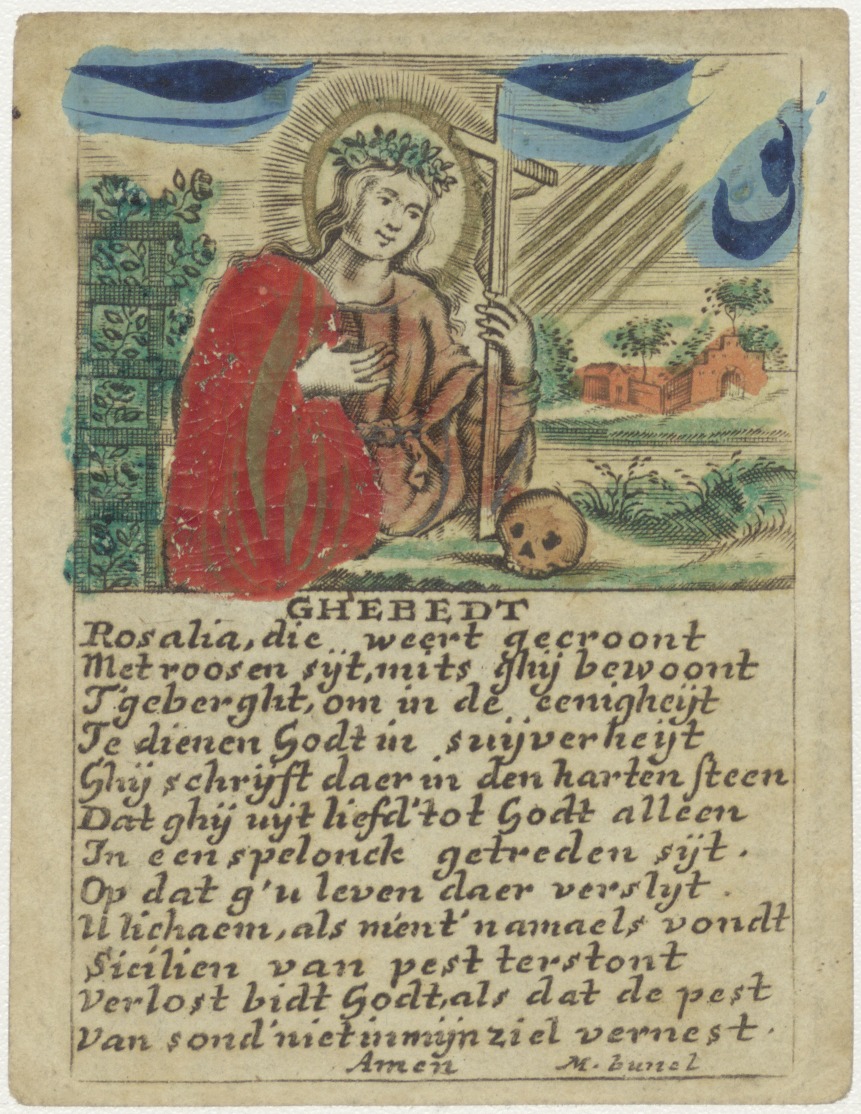 GHEBEDT
Rosalia, die weert gecroont
Met roosen sÿt, mits ghij bewoont
T'geberght, om in de eenigheÿt
Te dienen Godt in suÿverheÿt
Ghÿ schrÿft daer in den harten steen
Dat ghÿ uÿt liefd' tot Godt alleen
In een spelonck getreden sÿt.
Op dat g'u leven daer verslÿt.
U lichaem, als ment' namaels vondt
Sicilien van pest terstont
Verlost bidt Godt, als dat de pest
Van sond' niet in mÿn ziel vernest.
Amen M. bunel